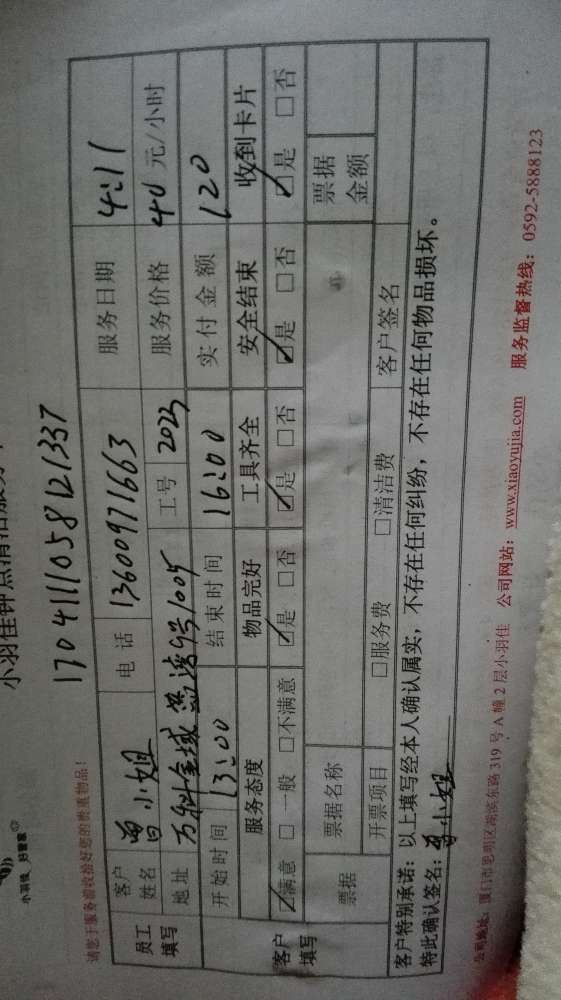 小羽佳 好管家
小羽佳钟点清洁服务
170411105812 1337
请您于服务前收拾好您的贵重物品!
员工填写 客户姓名 曾小姐 电话 13600971663 服务日期 4:11
地址 万科金域 9号1005 工号 2023 服务价格 40 元/小时
开始时间 13:00 结束时间 16:00 实付金额 120
客户填写 服务态度 物品完好 工具齐全 安全结束 收到卡片
☑满意 □一般 □不满意 ☑是 □否 ☑是 □否 ☑是 □否 ☑是 □否
票据 票据名称 票据金额
开票项目 □服务费 □清洁费 客户签名
客户特别承诺:以上填写经本人确认属实,不存在任何纠纷,不存在任何物品损坏。
特此确认签名:曾小姐
公司地址:厦门市思明区湖滨东路 319 号 A 幢 2 层小羽佳 公司网站:www.xiaoyujia.com 服务监督热线:0592-5888123